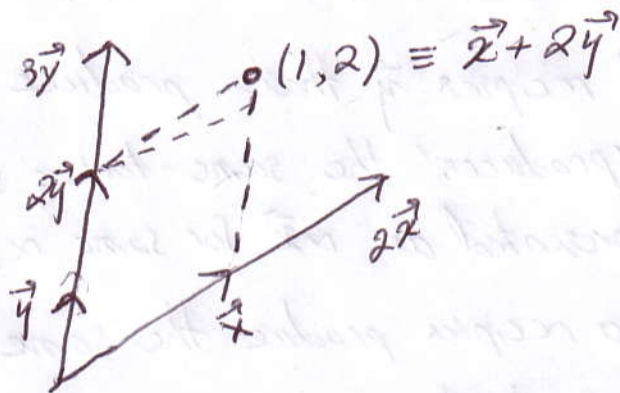 3y⃗
(1,2) ≡ x⃗ + 2y⃗
2y⃗
2x⃗
y⃗
x⃗